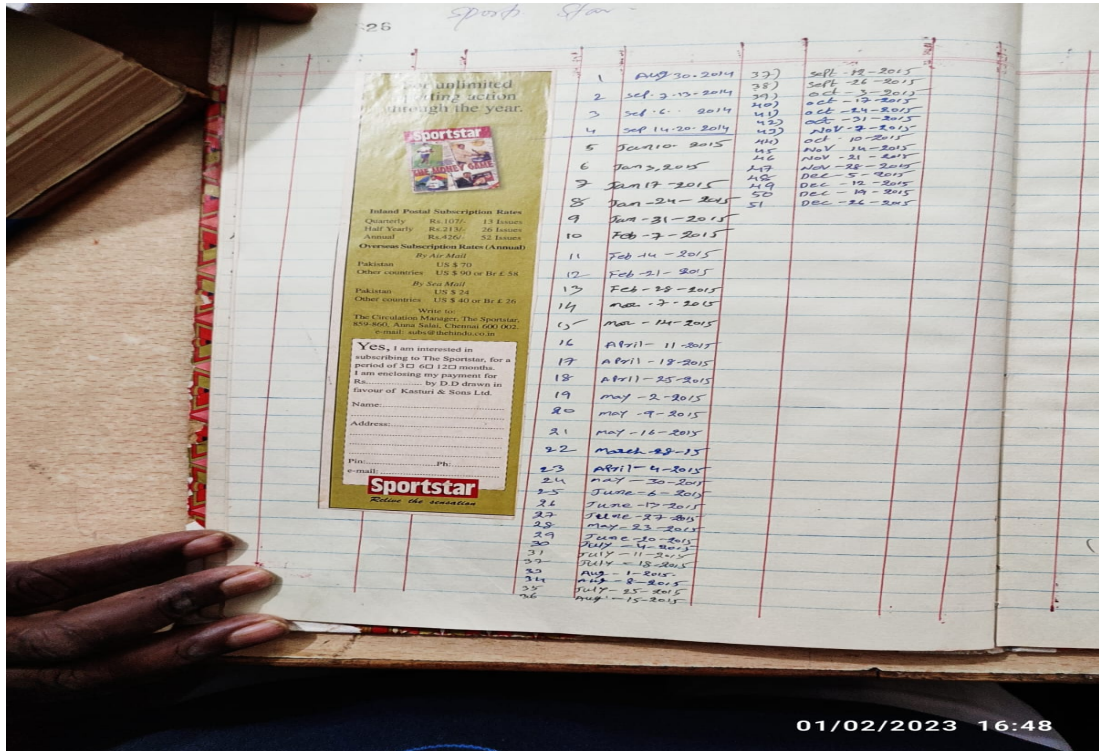 26
Sports Star
For unlimited
sporting action
through the year.
Sportstar
THE MONEY GAME
Inland Postal Subscription Rates
Quarterly Rs.107/- 13 Issues
Half Yearly Rs.213/- 26 Issues
Annual Rs.426/- 52 Issues
Overseas Subscription Rates (Annual)
By Air Mail
Pakistan US $ 70
Other countries US $ 90 or Br £ 58
By Sea Mail
Pakistan US $ 24
Other countries US $ 40 or Br £ 26
Write to:
The Circulation Manager, The Sportstar,
859-860, Anna Salai, Chennai 600 002.
e-mail: subs@thehindu.co.in
Yes, I am interested in
subscribing to The Sportstar, for a
period of 3☐ 6☐ 12☐ months.
I am enclosing my payment for
Rs.................. by D.D drawn in
favour of Kasturi & Sons Ltd.
Name:
Address:
Pin: Ph:
e-mail:
Sportstar
Relive the sensation
1 Aug 30-2014
2 Sep-7-13-2014
3 Sep-6- 2014
4 Sep 14-20-2014
5 Jan 10- 2015
6 Jan 3, 2015
7 Jan 17-2015
8 Jan-24-2015
9 Jan-31-2015
10 Feb-7-2015
11 Feb-14-2015
12 Feb-21-2015
13 Feb-28-2015
14 mar-7-2015
15 mar-14-2015
16 April-11-2015
17 April-18-2015
18 April-25-2015
19 may-2-2015
20 may-9-2015
21 may-16-2015
22 March-28-15
23 April-4-2015
24 may-30-2015
25 June-6-2015
26 June-13-2015
27 June-27-2015
28 May-23-2015
29 June-20-2015
30 July-4-2015
31 July-11-2015
32 July-18-2015
33 Aug-1-2015.
34 Aug-8-2015
35 July-25-2015
36 Aug-15-2015
37) Sept-12-2015
38) Sept-26-2015
39) oct-3-2015
40) oct-17-2015
41) oct-24-2015
42) oct-31-2015
43) Nov-7-2015
44) oct-10-2015
45 Nov 14-2015
46 Nov-21-2015
47 Nov-28-2015
48 Dec-5-2015
49 Dec-12-2015
50 Dec-19-2015
51 Dec-26-2015
01/02/2023 16:48